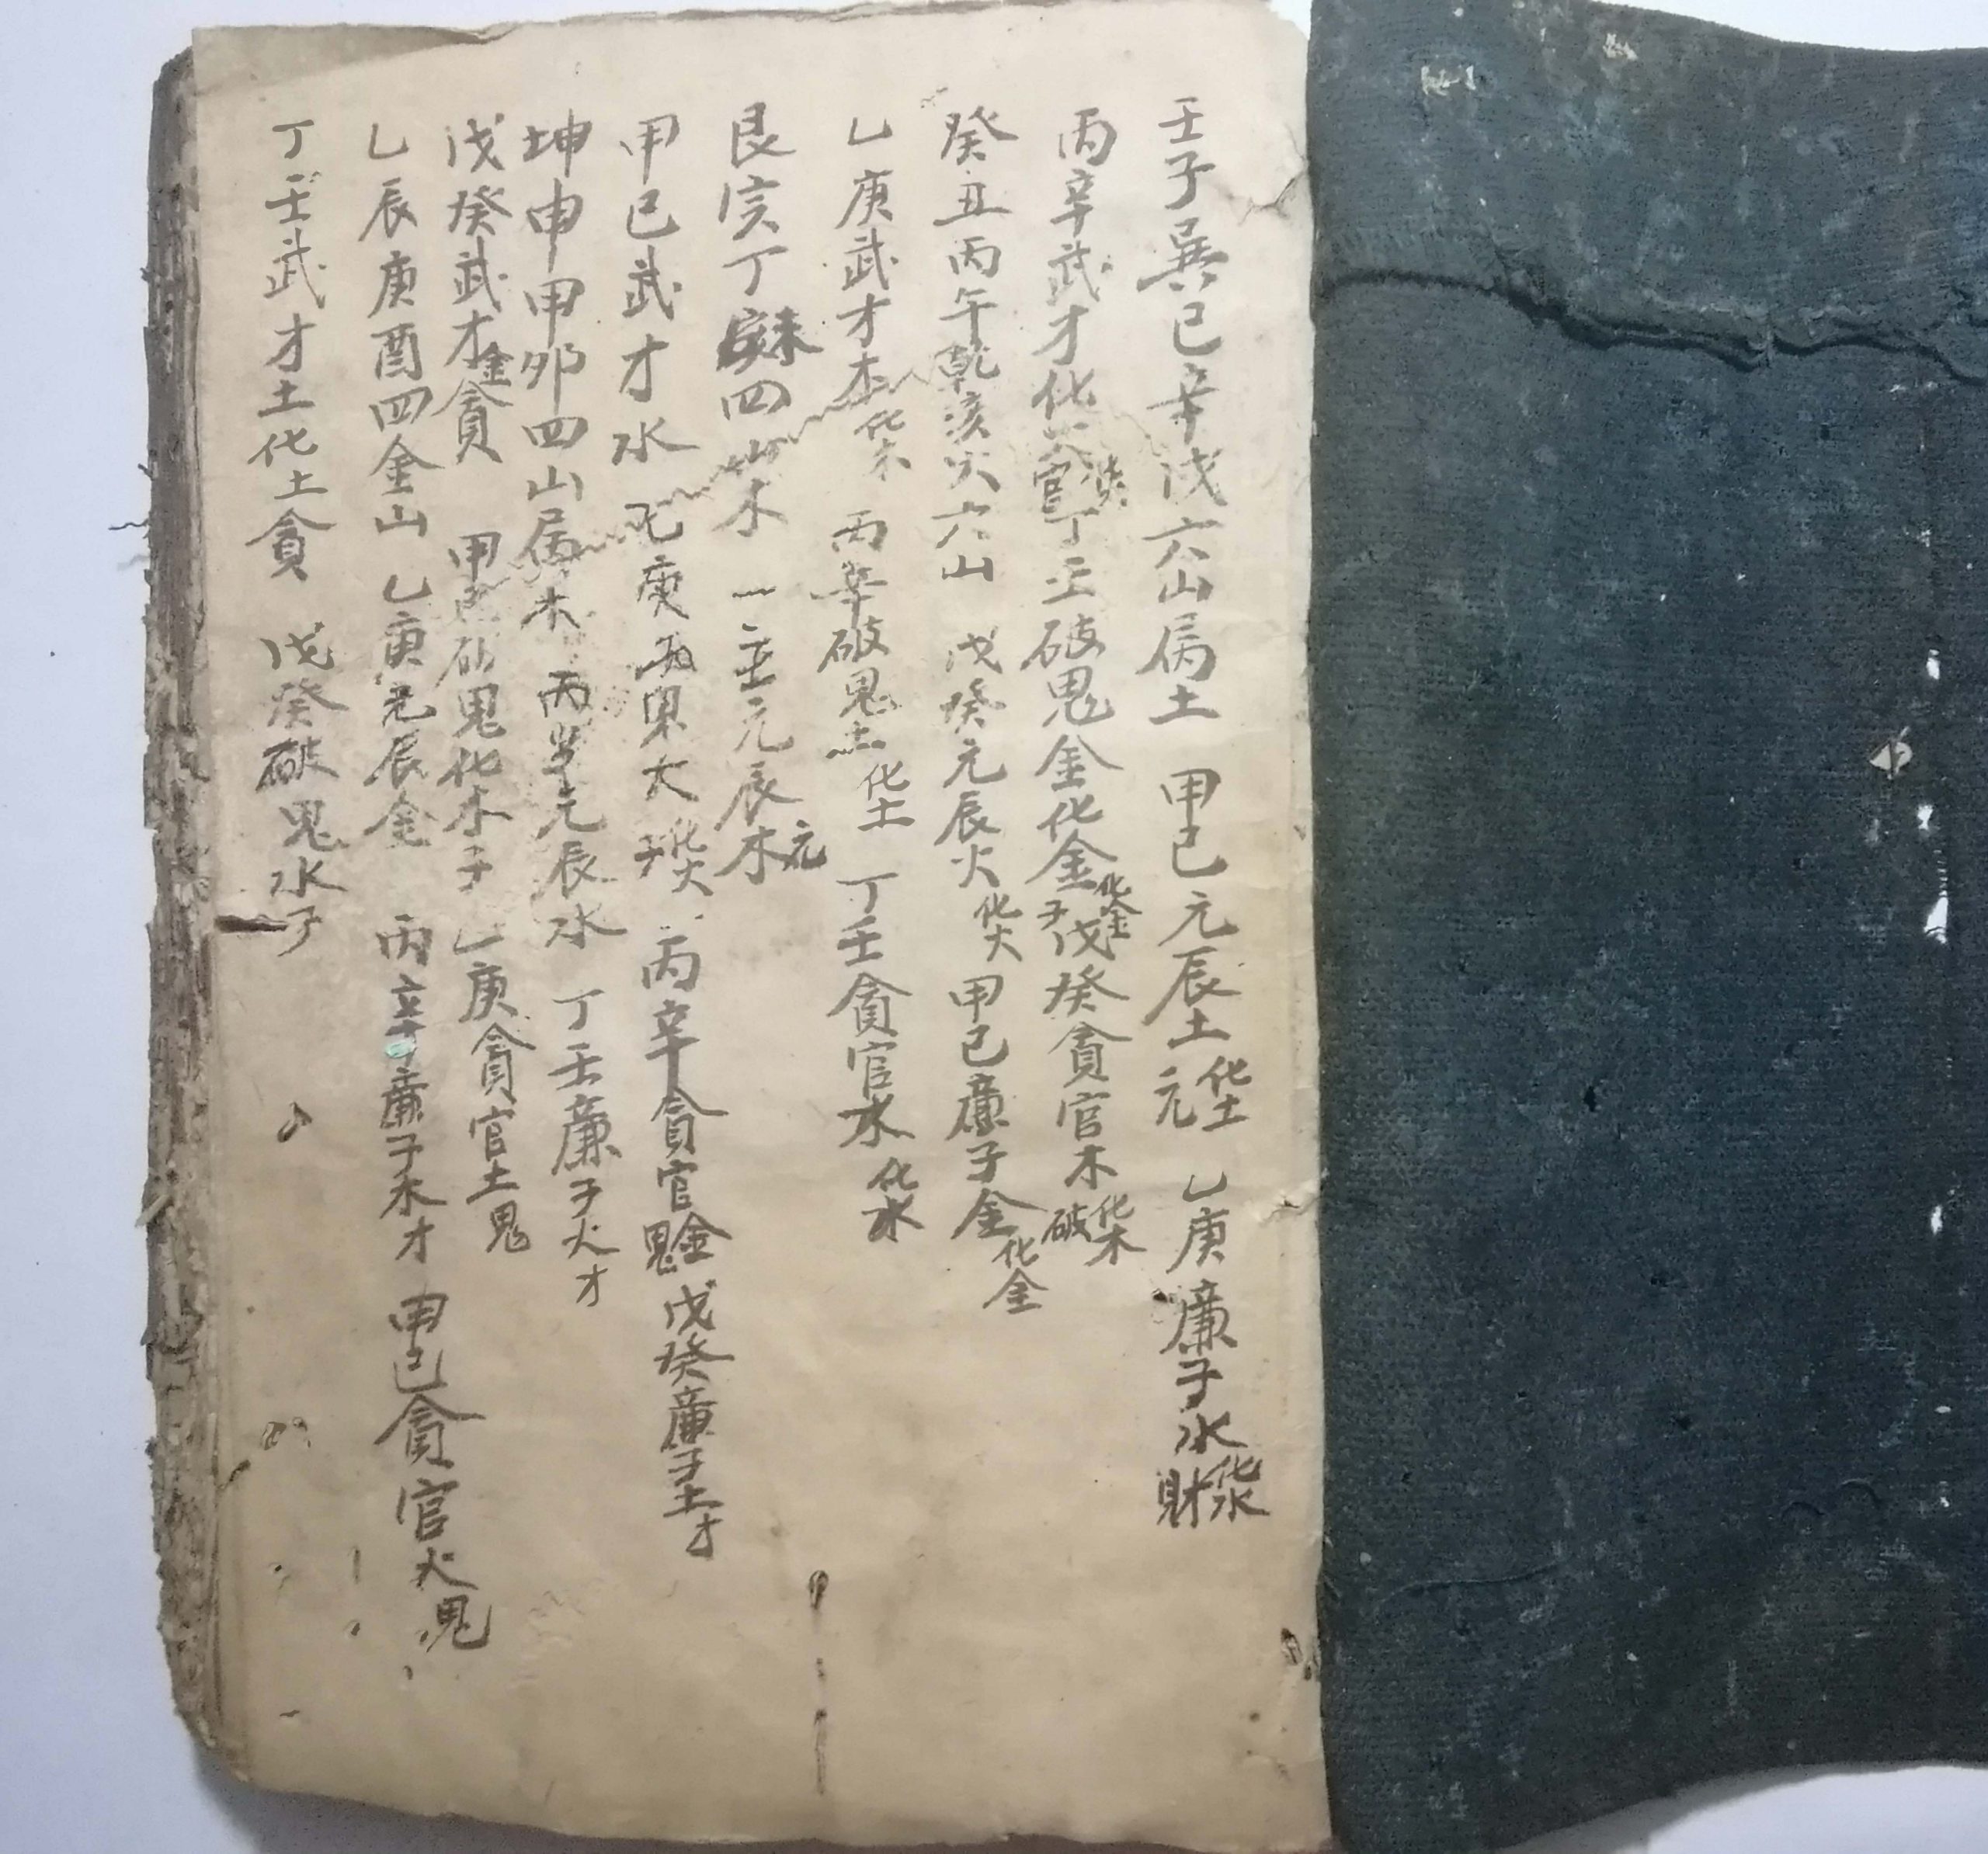 壬子巽巳辛戌六山属土 甲己元辰土化土元 乙庚廉子水化水財
丙辛武才化火官丁壬破鬼金化金化金子戊癸貪官木化木破
癸丑丙午乾亥火六山 戊癸元辰火化火甲己廉子金化金
乙庚武才木化木 丙辛破鬼土化土 丁壬貪官水化水
艮寅丁未四山木 一壬元辰木元
甲己武才水 乙庚鬼火化火子 丙辛貪官金鬼戊癸廉子土才
坤申甲卯四山属木 丙辛元辰水 丁壬廉子火才
戊癸武才金貪 甲己破鬼化木子 乙庚貪官土鬼
乙辰庚酉四金山 乙庚元辰金 丙辛廉子水才 甲己貪官火鬼
丁壬武才土化土貪 戊癸破鬼水子